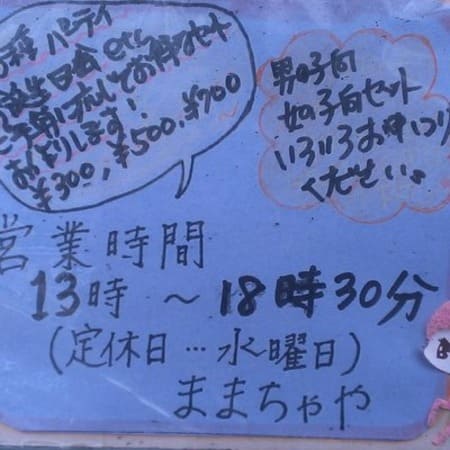 各種 パーティ
誕生日会 etc
ご予算に応じてお作りセット
おくりします!
¥300, ¥500, ¥700
男の子向
女の子向セット
いろいろお申しつけ
ください。
営業時間
13時 ~ 18時30分
(定休日…水曜日)
ままちゃや